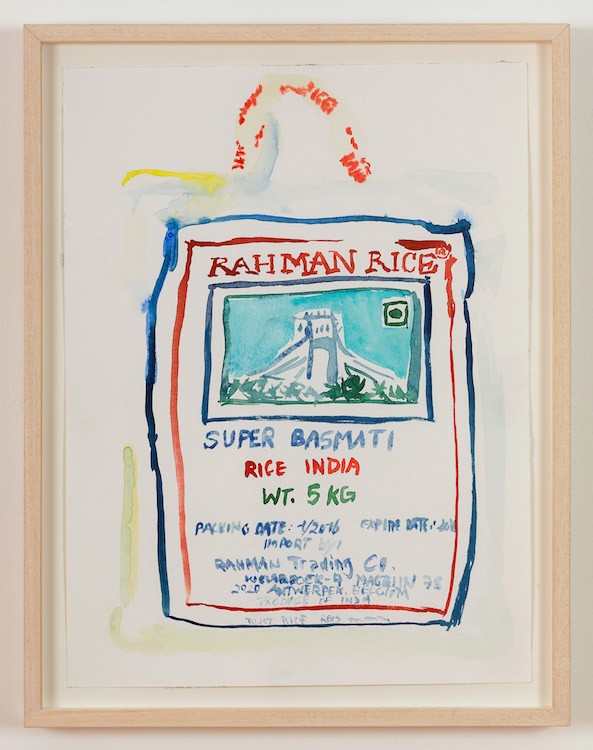 RAHMAN RICE®
SUPER BASMATI
RICE INDIA
WT. 5 KG
PACKING DATE: 1/2016 EXPIRE DATE:
IMPORT BY:
RAHMAN Trading Co.
MAGAZIJN 78
2020 ANTWERPEN. BELGIUM
PRODUCE OF INDIA
RICE